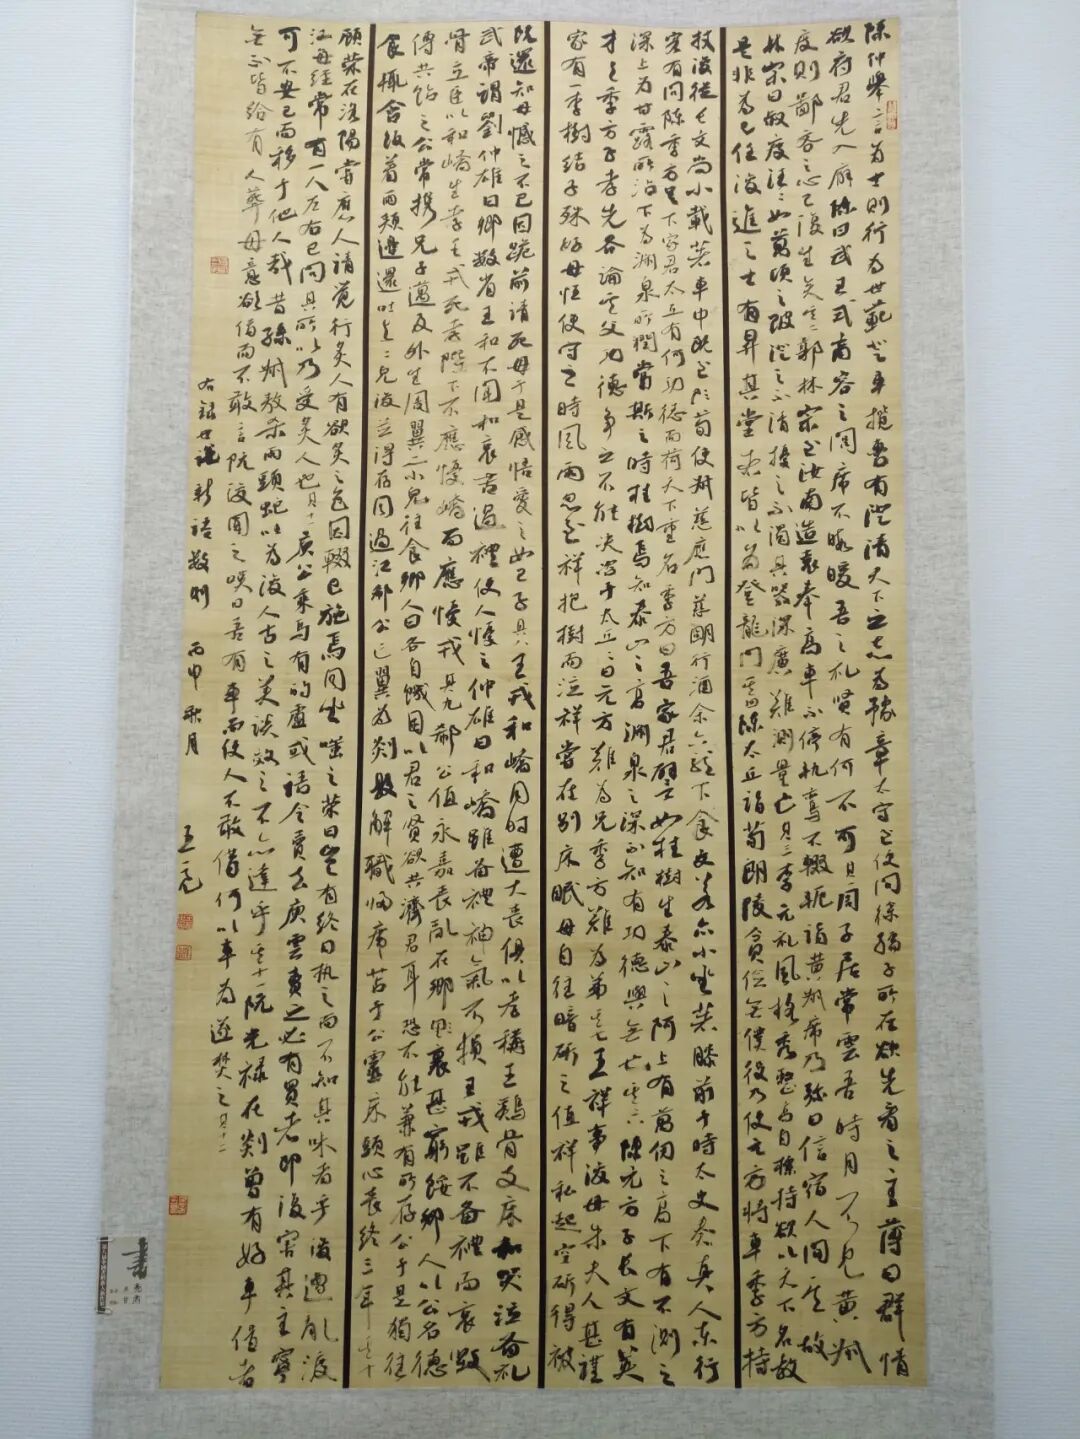 陈仲舉言为士則行为世範登車攬轡有澄清天下之志为豫章太守至便问徐孺子所在欲先看之主薄曰群情
欲府君先入廨陈曰武王式商容之闾席不暇暖吾之礼贤有何不可其二周子居常雲吾时月不见黄叔
度則鄙吝之心已復生矣其二郭林宗至汝南造袁奉高車不停軌鸞不輟軛诣黄叔度乃弥日信宿人问其故
林宗曰叔度汪汪如萬頃之陂澄之不清擾之不濁其器深廣難測量也其三李元礼風格秀整高自標持欲以天下名教
是非为己任後進之士有昇其堂者皆以为登龍門其四陈太丘诣荀朗陵貧儉無僕役乃使元方將車季方持
杖後從长文尚小載著車中既至荀使叔慈應门慈明行酒余六龍下食文若亦小坐著膝前于時太史奏真人東行
客有问陈季方足下家君太丘有何功德而荷天下重名季方曰吾家君譬如桂樹生泰山之阿上有萬仞之高下有不測之
深上为甘露所沾下为淵泉所潤當斯之時桂樹焉知泰山之高淵泉之深不知有功德與無也其六陈元方子长文有英
才与季方子孝先各論其父功德争之不能決咨于太丘太丘曰元方難为兄季方難为弟其七王祥事後母朱夫人甚謹
家有一李樹結子殊好母恒使守之時風雨忽至祥抱樹而泣祥嘗在别床眠母自往暗斫之值祥私起空斫得被
既還知母憾之不已因跪前請死母于是感悟愛之如己子其八王戎和嶠同时遭大喪俱以孝稱王鷄骨支床和哭泣备礼
武帝謂劉仲雄曰卿數省王和不聞和哀苦過禮使人憂之仲雄曰和嶠雖备禮神氣不損王戎雖不备禮而哀毁
骨立臣以和嶠生孝王戎死孝陛下不應憂嶠而應憂戎其九郗公值永嘉喪亂在鄉里甚窮餒鄉人以公名德
傳共飴之公常攜兄子邁及外生周翼二小兒往食鄉人曰各自饑困以君之賢欲共濟君耳恐不能兼有所存公于是獨往
食輒含飯著兩頰邊還吐与二兒後並得存同過江郗公亡翼为剡縣解職歸席苫于公靈床頭心喪終三年其十
顧榮在洛陽嘗應人請覺行炙人有欲炙之色因輟己施焉同坐嗤之榮曰豈有終日执之而不知其味者乎後遭亂渡
江每經常有一人左右己问其所以乃受炙人也其十一庾公乘马有的盧或語令賣去庾雲賣之必有買者即復害其主寧
可不安己而移于他人哉昔孫叔敖殺兩頭蛇以为後人古之美談效之不亦達乎其十一阮光禄在剡曾有好車借者
無不皆給有人葬母意欲借而不敢言阮後聞之嘆曰吾有車而使人不敢借何以車为遂焚之其十二
右録世說新語數則 丙申秋月 王亮